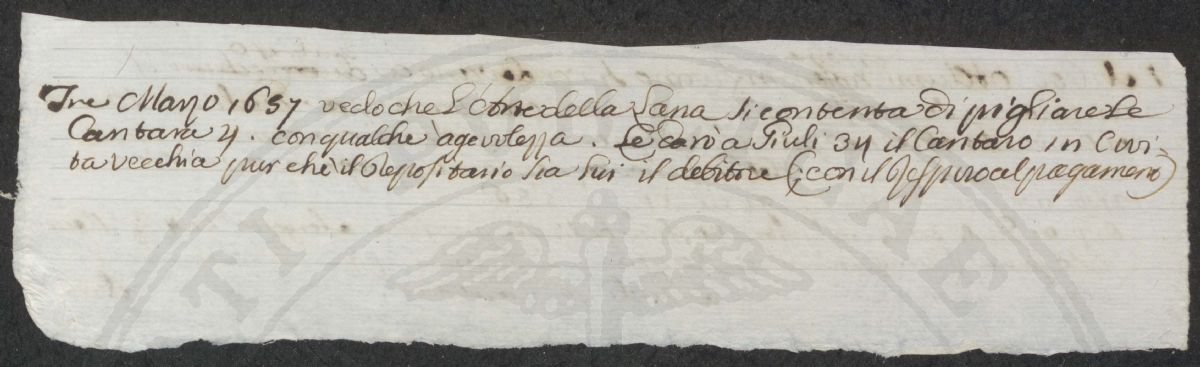 Tre Marzo 1657 vedo che l'Arte della Lana si contenta di pigliare le
Cantara 4. con qualche agevolezza. Le darò a Giuli 34 il Cantaro in Civi-
ta vecchia pur che il Depositario sia lui il debitore (con il respiro al pagamento)